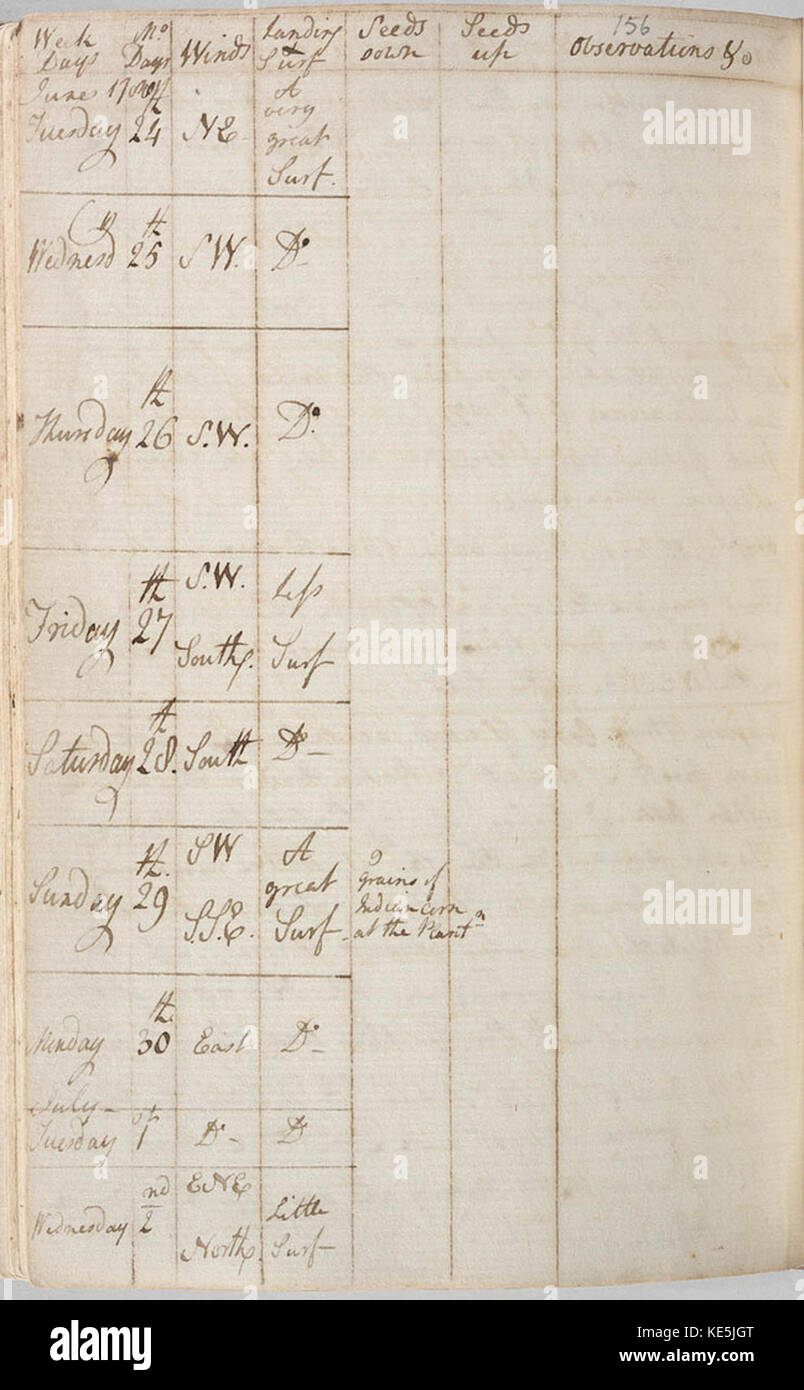 156
Week Days | Mo. Days | Winds | Landing Surf | Seeds down | Seeds up | Observations &c
June
Tuesday 24th | NE | A very great Surf.
Wednesd 25th | S W. | Do
Thursday 26th | S.W. | Do.
Friday 27th | S.W. South | less Surf
Saturday 28th. | South | Do
Sunday 29th. | SW S.S.E. | A great Surf | 9 grains of Indian corn at the Plantn
Monday 30th | East | Do
July
Tuesday 1st | Do | Do
Wednesday 2nd | ENE North | Little Surf
alamy
Image ID: KE5JGT
www.alamy.com